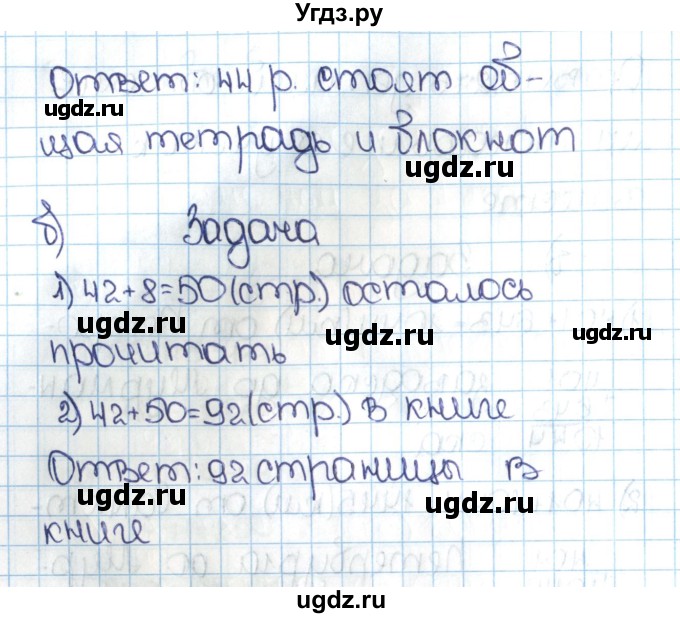 Угдз.ру
Ответ: 44 р. стоят об-
ugdz.ru
щая тетрадь и блокнот
ugdz.ru
б) Задача
1) 42+8=50(стр.) осталось
ugdz.ru ugdz.ru
прочитать
ugdz.ru
2) 42+50=92(стр.) в книге
Ответ: 92 страницы в
ugdz.ru ugdz.ru
книге
ugdz.ru